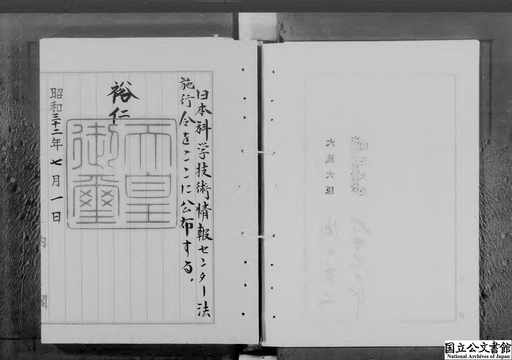 日本科学技術情報センター法
施行令をここに公布する。
裕仁
天皇
御璽
昭和三十二年七月一日
国立公文書館
National Archives of Japan